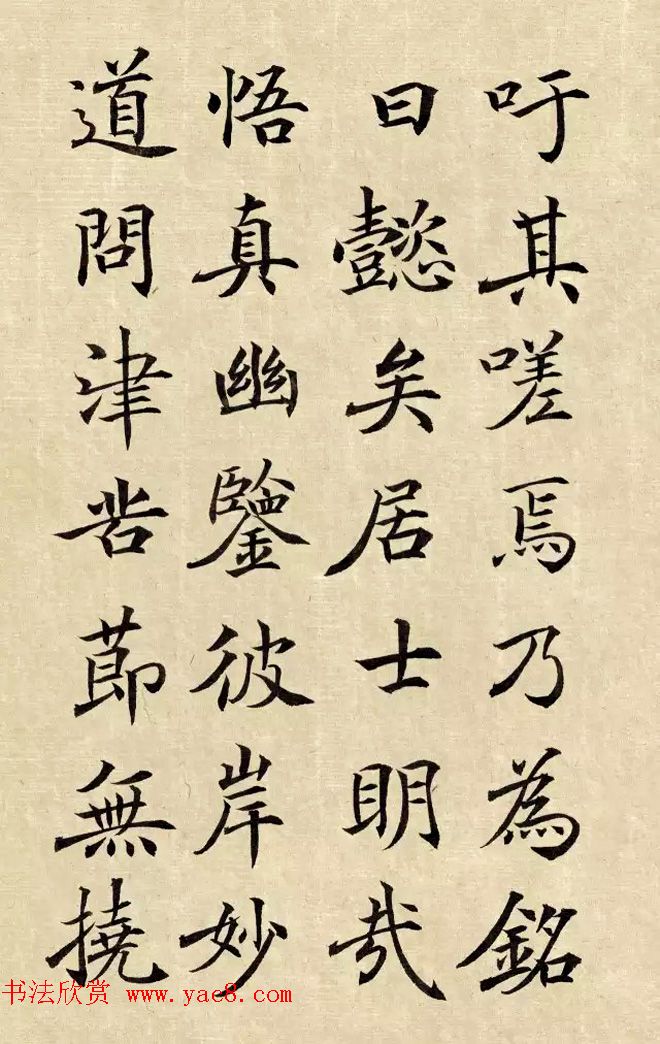 吁其嗟焉乃為銘
曰懿矣居士明哉
悟真幽鑒彼岸妙
道問津苦節無撓
书法欣赏 www.yac8.com